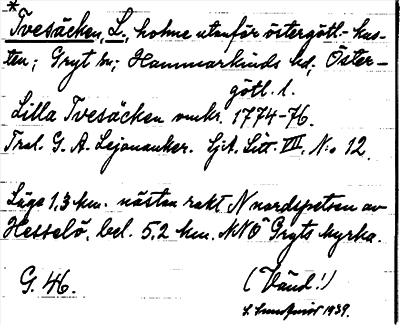 *
Tvesäcken, L., holme utanför östergötl.-kus-
ten; Gryt sn; Hammarkinds hd, Öster-
götl. l.
Lilla Tvesäcken omkr. 1774-76.
Trsl. G. A. Lejonanker. Sjk. Litt. VII, N:o 12.
Läge 1,3 km. nästan rakt N nordspetsen av
Hesselö, bel. 5,2 km. NNO Gryts kyrka.
G. 46.
(Vänd!)
1939.